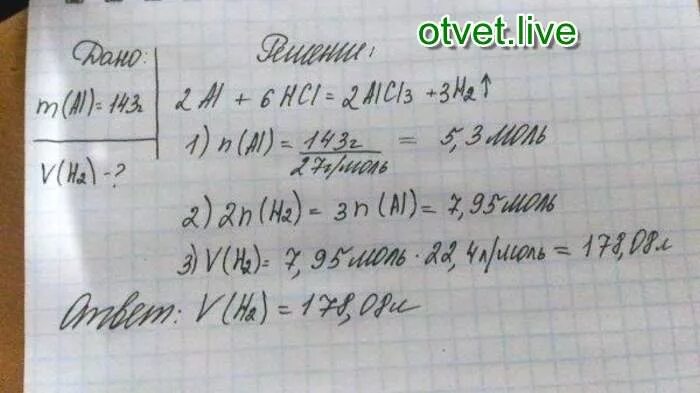 otvet.live
Дано:
Решение:
m(Al)=143г
2Al + 6HCl = 2AlCl3 + 3H2↑
V(H2)-?
1) n(Al) = 143г / 27г/моль = 5,3 моль
2) 2n(H2) = 3n(Al) = 7,95 моль
3) V(H2) = 7,95 моль · 22,4 л/моль = 178,08 л
Ответ: V(H2) = 178,08 л